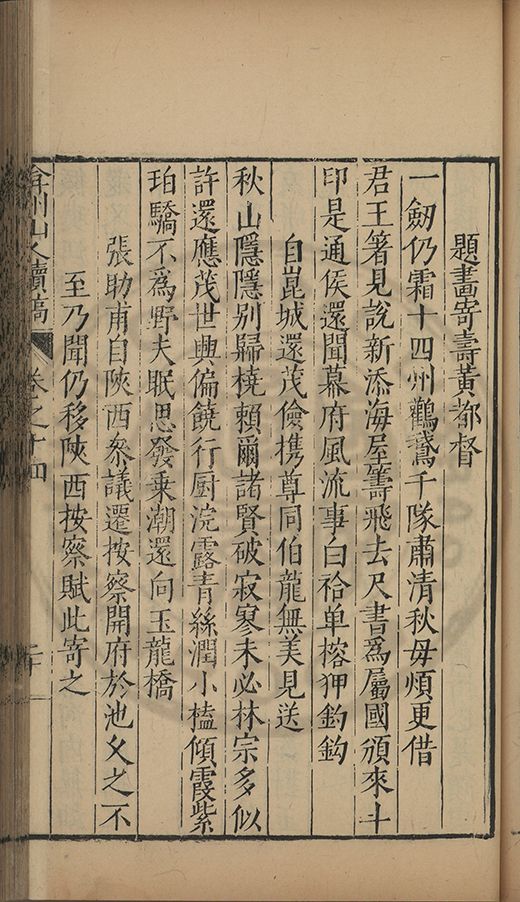 題畫寄壽黃都督
一劒仍霜十四州鸛鵞千隊肅清秋毋煩更借
君王箸見說新添海屋籌飛去尺書爲屬國頒來斗
印是通侯還聞幕府風流事白袷单榕狎釣鈎
自崑城還茂儉携尊同伯龍無美見送
秋山隱隱別歸橈賴爾諸賢破寂寥未必林宗多似
許還應茂世興偏饒行厨浣露青絲潤小榼傾霞紫
珀驕不爲野夫眠思發乗潮還向玉龍橋
張助甫自陝西叅議遷按察開府於池父之不
至乃聞仍移陝西按察賦此寄之
弇州山人續稿
卷之十四
二十